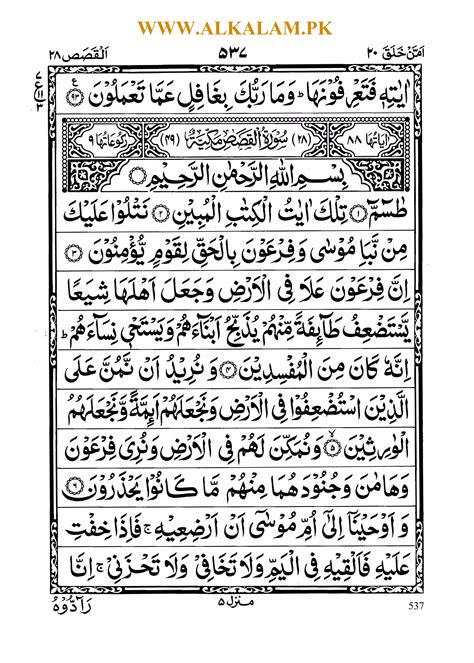 WWW.ALKALAM.PK
اَمَّنْ خَلَقَ ٢٠
٥٣٧
اَلْقَصَص ٢٨
اٰيٰتِهٖ فَتَعْرِفُوْنَهَا ؕ وَمَا رَبُّكَ بِغَافِلٍ عَمَّا تَعْمَلُوْنَ ۝٩٣
اٰيَاتُهَا ٨٨ (٢٨) سُوْرَةُ الْقَصَصِ مَكِّيَّةٌ (٤٩) رُكُوْعَاتُهَا ٩
بِسْمِ اللّٰهِ الرَّحْمٰنِ الرَّحِيْمِ ۝
طٰسٓمّٓ ۝١ تِلْكَ اٰيٰتُ الْكِتٰبِ الْمُبِيْنِ ۝٢ نَتْلُوْا عَلَيْكَ
مِنْ نَّبَاِ مُوْسٰى وَفِرْعَوْنَ بِالْحَقِّ لِقَوْمٍ يُّؤْمِنُوْنَ ۝٣
اِنَّ فِرْعَوْنَ عَلَا فِى الْاَرْضِ وَجَعَلَ اَهْلَهَا شِيَعًا
يَّسْتَضْعِفُ طَآئِفَةً مِّنْهُمْ يُذَبِّحُ اَبْنَآءَهُمْ وَيَسْتَحْىٖ نِسَآءَهُمْ ؕ
اِنَّهٗ كَانَ مِنَ الْمُفْسِدِيْنَ ۝٤ وَنُرِيْدُ اَنْ نَّمُنَّ عَلَى
الَّذِيْنَ اسْتُضْعِفُوْا فِى الْاَرْضِ وَنَجْعَلَهُمْ اَئِمَّةً وَّنَجْعَلَهُمُ
الْوٰرِثِيْنَ ۝٥ وَنُمَكِّنَ لَهُمْ فِى الْاَرْضِ وَنُرِىَ فِرْعَوْنَ
وَهَامٰنَ وَجُنُوْدَهُمَا مِنْهُمْ مَّا كَانُوْا يَحْذَرُوْنَ ۝٦
وَاَوْحَيْنَآ اِلٰٓى اُمِّ مُوْسٰٓى اَنْ اَرْضِعِيْهِ ۚ فَاِذَا خِفْتِ
عَلَيْهِ فَاَلْقِيْهِ فِى الْيَمِّ وَلَا تَخَافِىْ وَلَا تَحْزَنِىْ ۚ اِنَّا
رَآدُّوْهُ
منزل ٥
537